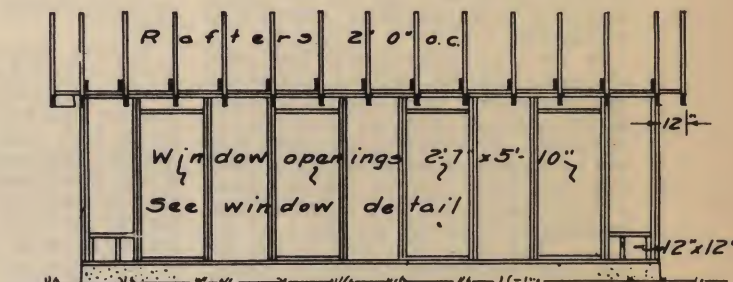 Rafters 2'0" o.c.
12"
Window openings 2'-7" x 5'-10"
See window detail
12"x12"